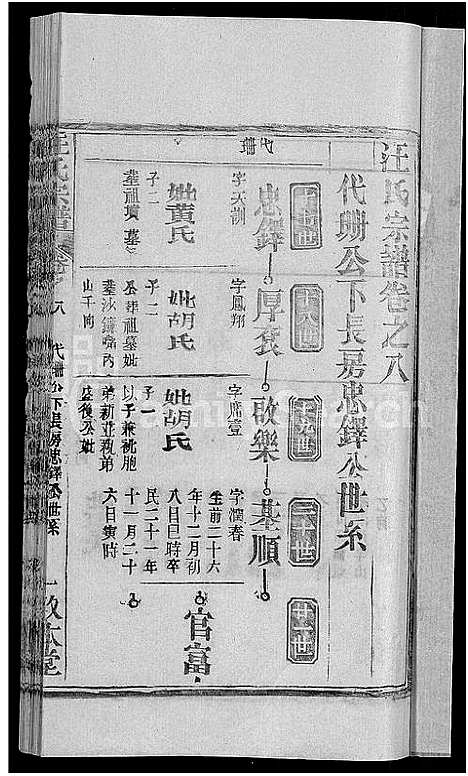 汪氏宗譜卷之八
代珊公下長房忠鐸公世系
十七世
十八世
十九世
二十世
廿一世
忠鐸
厚袞
啟樂
基順
字天訓
字鳳翔
字席壹
字潤春
生前二十六
年十二月初
八日巳時卒
民二十一年
十一月二十
六日寅時
妣黃氏
妣胡氏
妣胡氏
官富
子二
葬祖墳墓
子二
公葬祖墓妣
山壬向
子一
以子兼祧胞
弟新並親弟
盛後公妣
代珊
汪氏宗譜
卷之八
代珊公下長房忠鐸公世系
一
敘本堂
FamilySearch